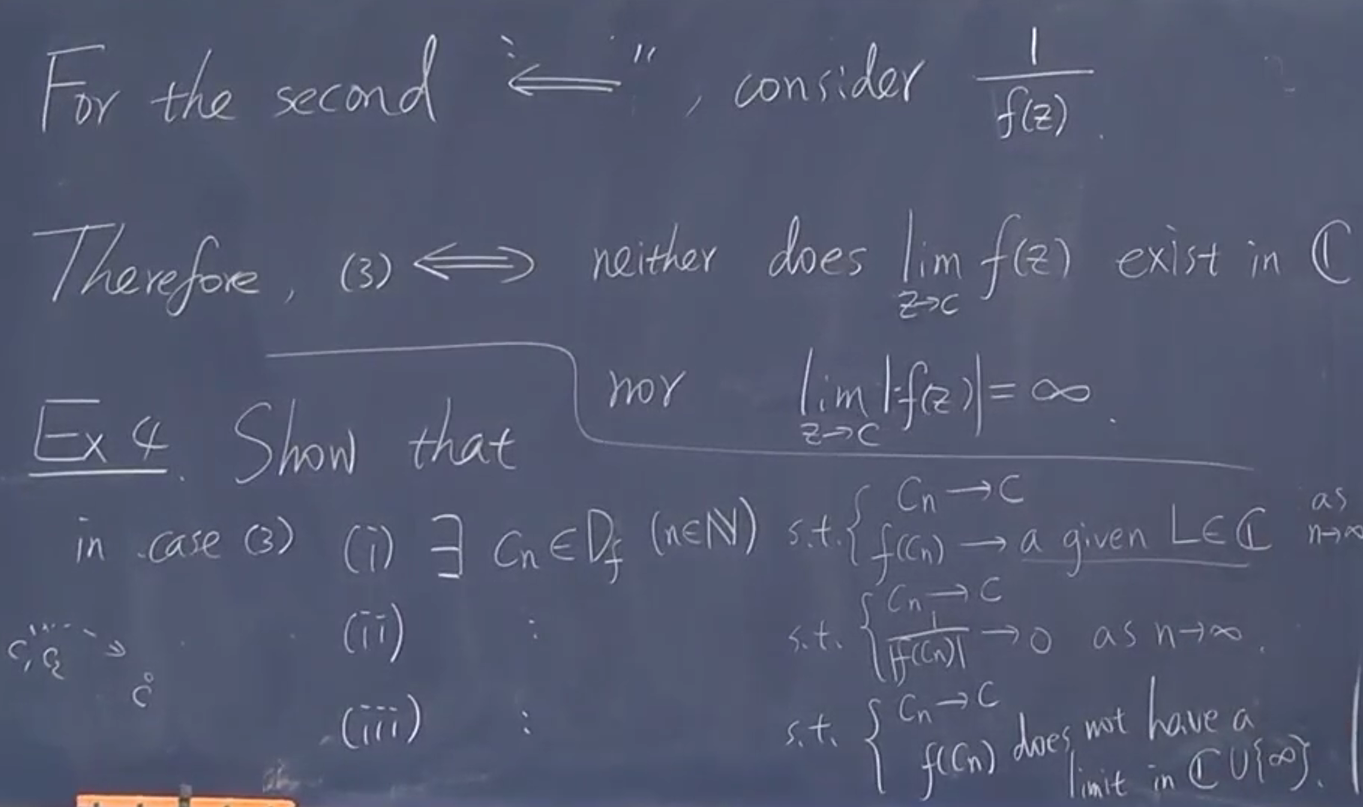 For the second "⟸", consider 1/f(z).
Therefore, (3) ⟺ neither does lim_{z→c} f(z) exist in ℂ
nor lim_{z→c} |f(z)| = ∞.
Ex 4. Show that
in case (3) (i) ∃ Cn ∈ D_f (n∈ℕ) s.t. { Cn → C
f(Cn) → a given L∈ℂ as n→∞
(ii) : s.t. { Cn → C
1/|f(Cn)| → 0 as n→∞.
C1 C2
C
(iii) : s.t. { Cn → C
f(Cn) does not have a
limit in ℂ∪{∞}.